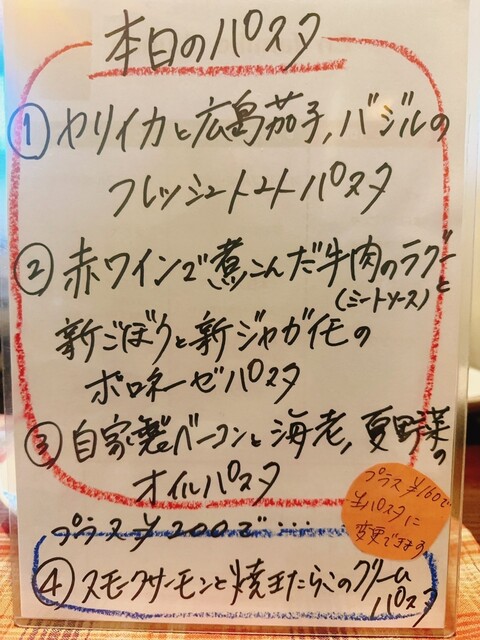 本日のパスタ
① ヤリイカと広島茄子,バジルの
フレッシュトマトパスタ
② 赤ワインで煮こんだ牛肉のラグーと
(ミートソース)
新ごぼうと新ジャガイモの
ボロネーゼパスタ
③ 自家製ベーコンと海老,夏野菜の
オイルパスタ
プラス¥160で
生パスタに
変更できます
プラス¥200で・・・・
④ スモークサーモンと焼きたらこのクリーム
パスタ